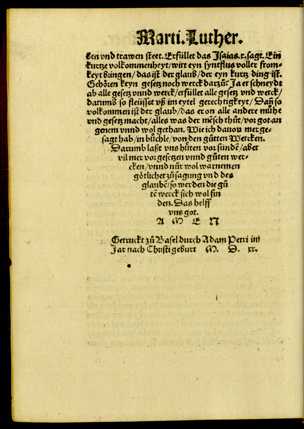 Marti. Luther.
ben vnd trawen steet. Erfüllet das Isaias.x. sagt. Ein
kurtze volkommenheyt/ wirt eyn syntfluß voller from-
keyt bringen/ das ist der glaub/ der eyn kurtz ding ist.
Gehören keyn gesetz noch werck dartzů: Ja er schneydt
ab alle gesetz vnnd werck/ erfüllet alle gesetz vnd werck/
darumb so fleüsset vß im eytel gerechtigkeyt/ Dann so
volkommen ist der glaub/ das er on alle ander mühe
vnd gesetz macht/ alles was der mēsch thůt/ vor got an
genem vnnd wol gethan. Wie ich dauon mer ge-
sagt hab/ im büchle/ von den gůtten Wercken.
Darumb lasst vns hüten vor sünde/ aber
vil mer vor gesetzen vnnd gůten wer-
cken/ vnnd nůr wol warnemen
götlicher zůsagung vnd des
glaubē/ so werden die gů
tē werck sich wol fin
den. Das helff
vns got.
A M E N
Getruckt zů Basel durch Adam Petri im
Jar nach Christi geburt M. D. xx.